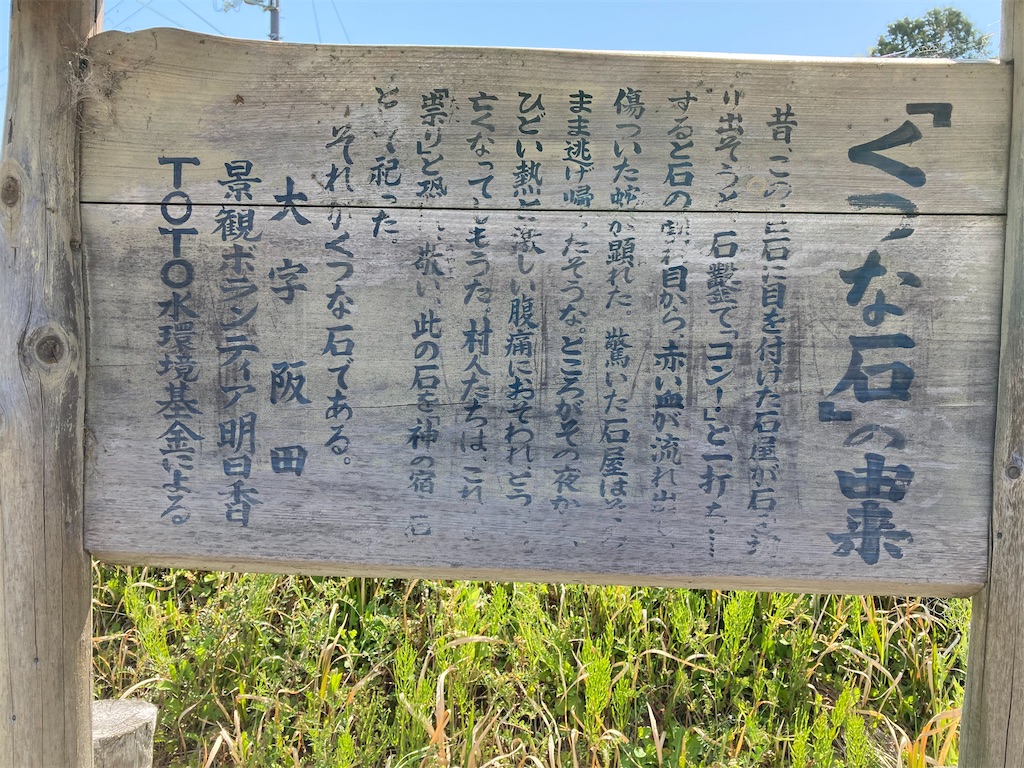 「くつな石」の由来
昔、この石に目を付けた石屋が石を
出そうと石鑿で「コン!」と一打ち……
すると石の割れ目から赤い血が流れ出
傷ついた蛇が顕れた。驚いた石屋は
まま逃げ帰ったそうな。ところがその夜か
ひどい熱と激しい腹痛におそわれとう
亡くなってしもうた。村人たちは、これ
「祟り」と恐れ敬い、此の石を「神の宿 石
として祀った。
それがくつな石である。
大字阪田
景観ボランティア明日香
TOTO水環境基金による